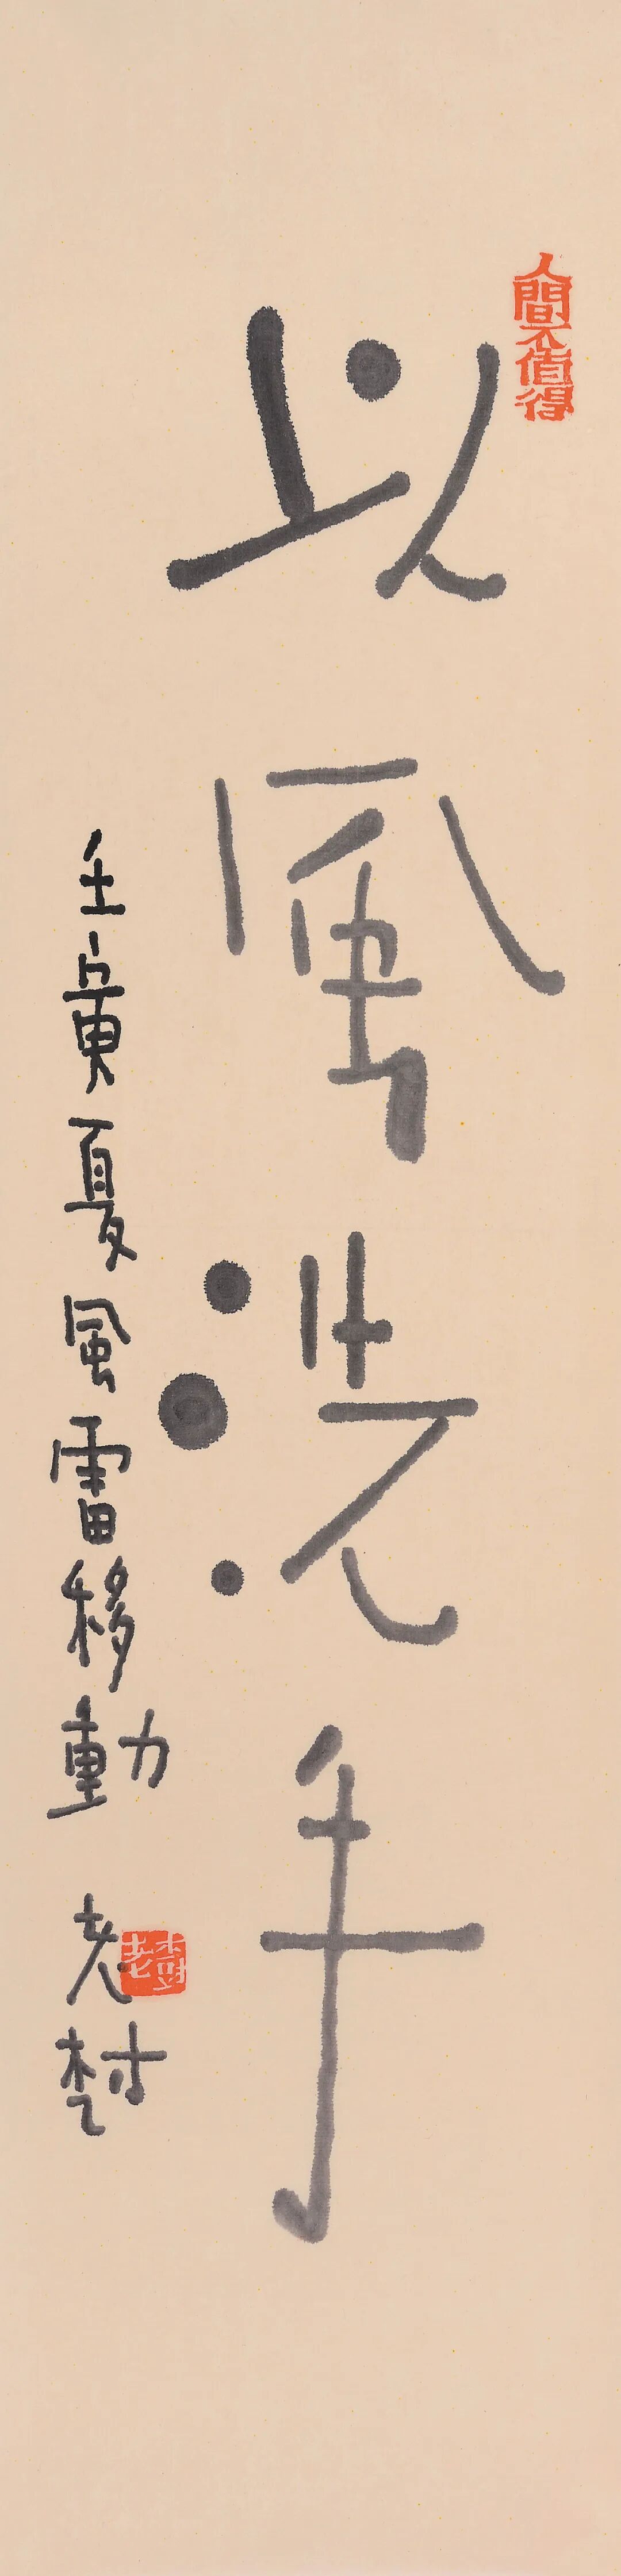 人間不值得
以風洗手
壬寅夏風雷移動
老樹
老樹